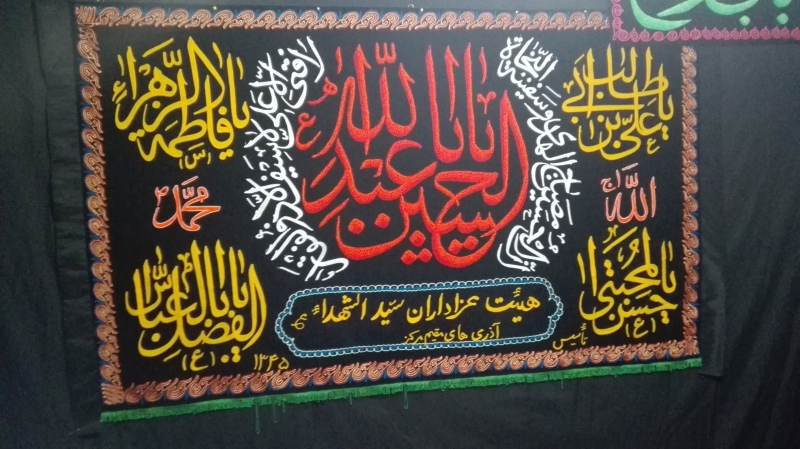 یا علی بن ابی طالب
ع
الله
ج
یا حسن المجتبی
(ع)
ان الحسین مصباح الهدی و سفینة النجاة
یا ابا عبدالله الحسین
ع
لا فتی الا علی لا سیف الا ذوالفقار
یا فاطمة الزهراء
(س)
محمد
یا ابا الفضل العباس
(ع)
هیئت عزاداران سید الشهداء
آذری های مقیم مرکز
تأسیس
۱۳۴۵